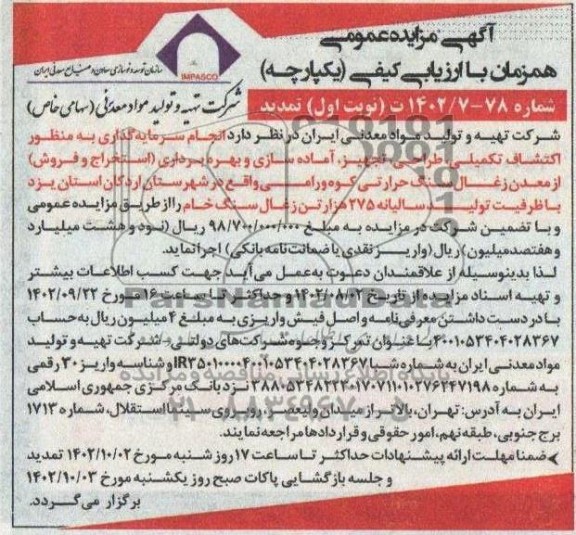 آگهی مزایده عمومی
همزمان با ارزیابی کیفی (یکپارچه)
شماره ۷۸-۱۴۰۲/۷ ت (نوبت اول) تمدید
IMPASCO
سازمان توسعه و نوسازی معادن و صنایع معدنی ایران
شرکت تهیه و تولید مواد معدنی (سهامی خاص)
شرکت تهیه و تولید مواد معدنی ایران در نظر دارد انجام سرمایه‌گذاری به منظور
اکتشاف تکمیلی، طراحی، تجهیز، آماده سازی و بهره برداری (استخراج و فروش)
از معدن زغال سنگ حرارتی کوه ورامی واقع در شهرستان اردکان استان یزد
با ظرفیت تولید سالیانه ۲۷۵ هزار تن زغال سنگ خام را از طریق مزایده عمومی
و با تضمین شرکت در مزایده به مبلغ ۹۸/۷۰۰/۰۰۰/۰۰۰ ریال (نود و هشت میلیارد
و هفتصد میلیون) ریال (واریز نقدی یا ضمانت نامه بانکی) اجرا نماید.
لذا بدینوسیله از علاقمندان دعوت به عمل می‌آید جهت کسب اطلاعات بیشتر
و تهیه اسناد مزایده از تاریخ ۱۴۰۲/۰۸/۲۲ و حداکثر تا ساعت ۱۶ مورخ ۱۴۰۲/۰۹/۲۲
با در دست داشتن معرفی نامه و اصل فیش واریزی به مبلغ ۴ میلیون ریال به حساب
۴۰۰۱۰۵۳۴۰۴۰۲۸۳۶۷ با عنوان تمرکز وجوه شرکت‌های دولتی - شرکت تهیه و تولید
مواد معدنی ایران به شماره شبا IR۳۵۰۱۰۰۰۰۴۰۰۱۰۵۳۴۰۴۰۲۸۳۶۷ و شناسه واریز ۳۰ رقمی
به شماره ۳۸۸۰۵۳۴۸۲۲۳۰۱۷۰۷۱۱۰۱۰۲۷۶۲۴۷۱۹۸ نزد بانک مرکزی جمهوری اسلامی
ایران به آدرس: تهران، بالاتر از میدان ولیعصر، روبروی سینما استقلال، شماره ۱۷۱۳
برج جنوبی، طبقه نهم، امور حقوقی و قراردادها مراجعه نمایند.
ضمنا مهلت ارائه پیشنهادات حداکثر تا ساعت ۱۷ روز شنبه مورخ ۱۴۰۲/۱۰/۰۲ تمدید
و جلسه بازگشایی پاکات صبح روز یکشنبه مورخ ۱۴۰۲/۱۰/۰۳
برگزار می گردد.